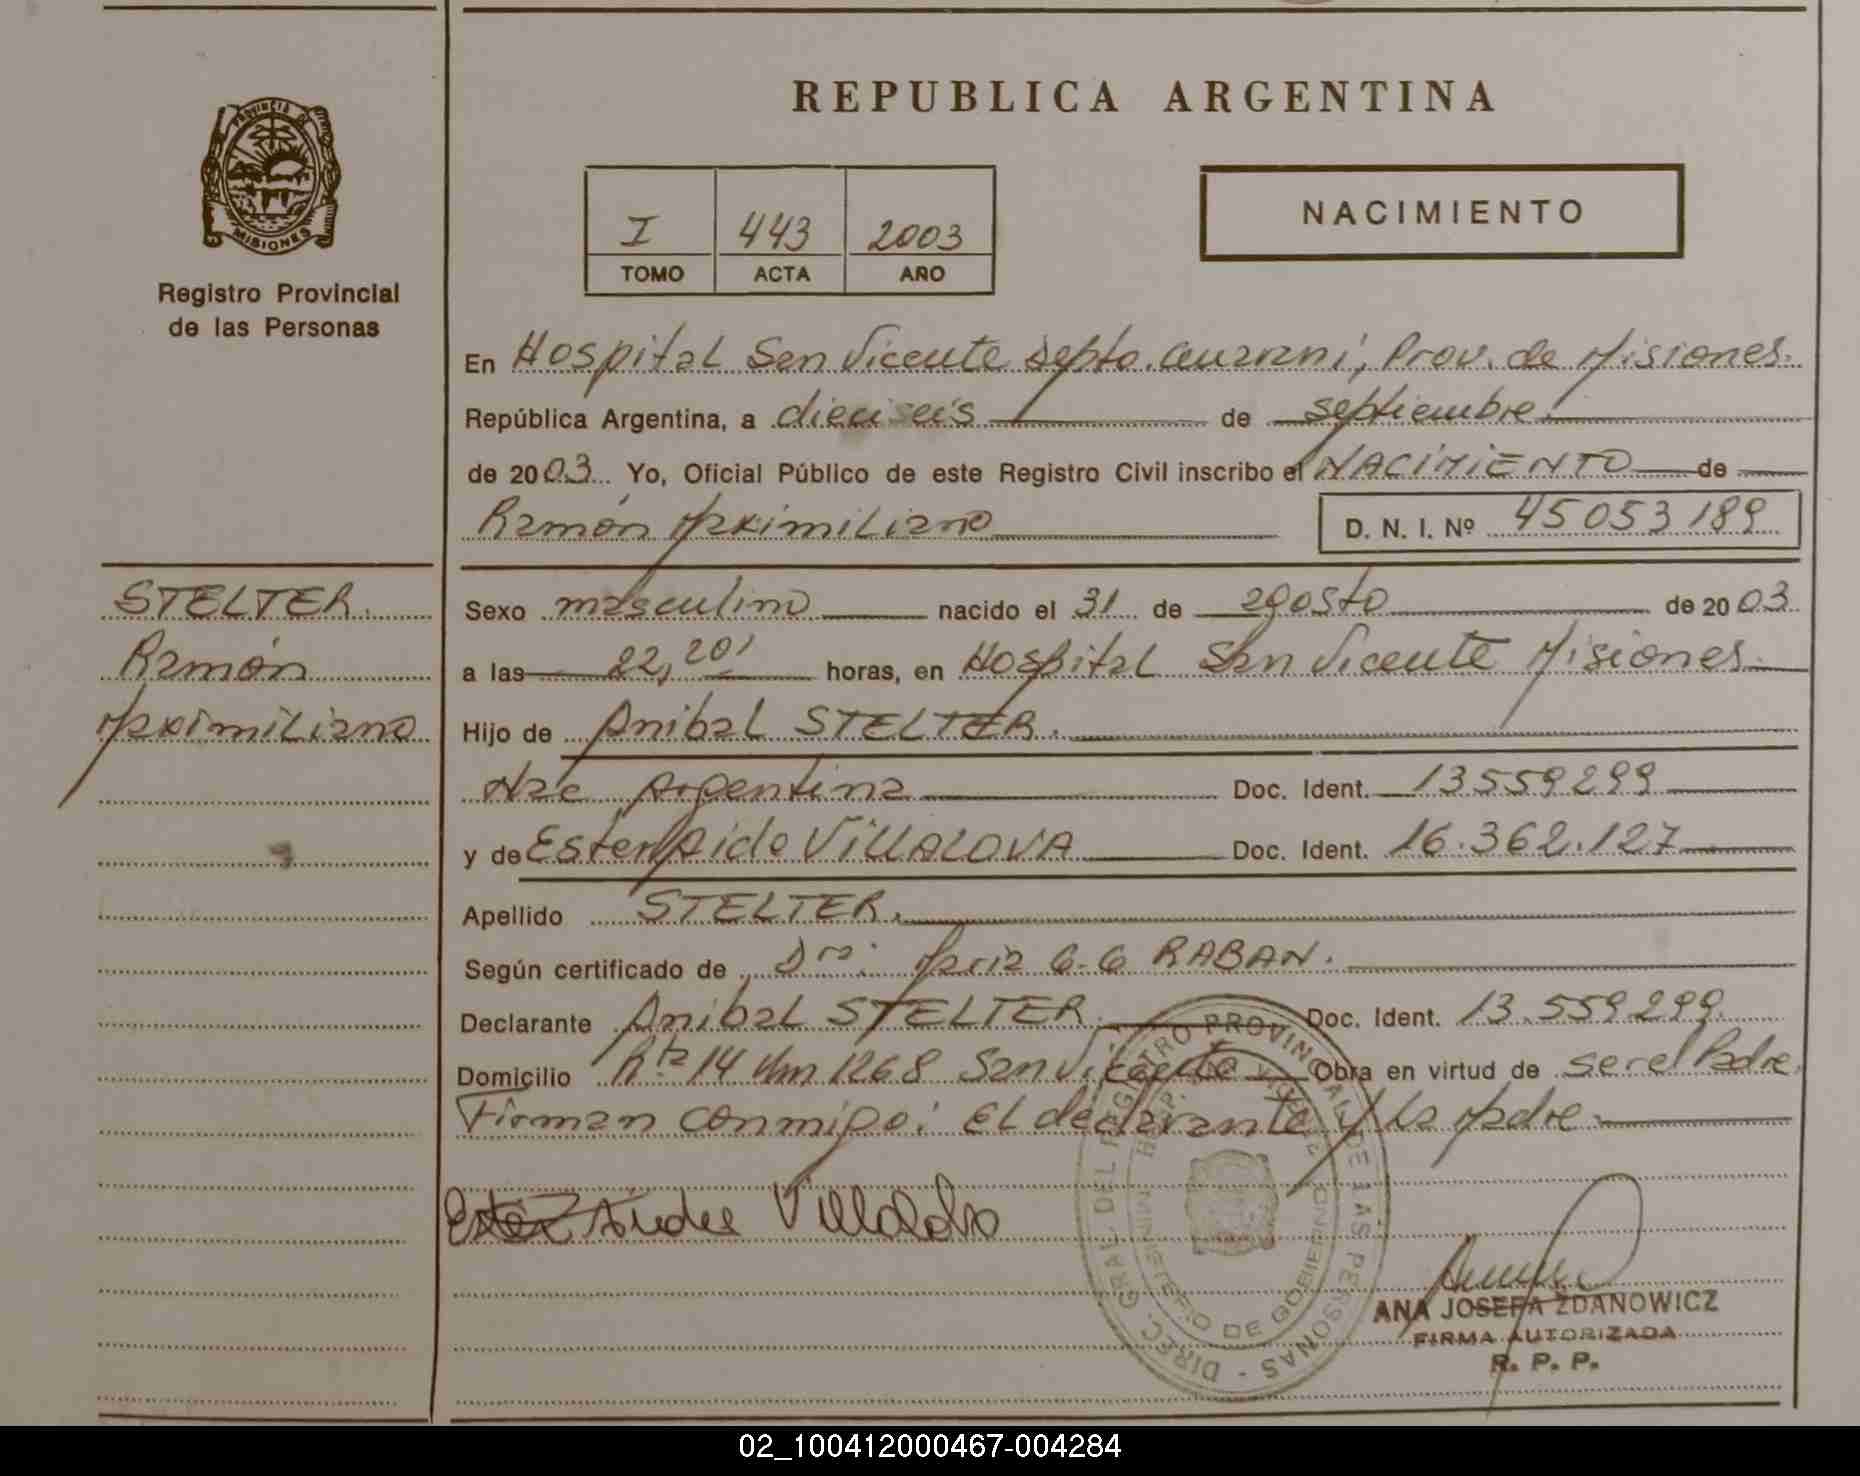 REPUBLICA ARGENTINA
PROVINCIA DE
MISIONES
Registro Provincial
de las Personas
I 443 2003
TOMO ACTA AÑO
NACIMIENTO
En Hospital San Vicente Depto. Guarani, Prov. de Misiones.
República Argentina, a dieciseis de septiembre
de 2003. Yo, Oficial Público de este Registro Civil inscribo el NACIMIENTO de
Ramón Maximiliano D. N. I. Nº 45053189
STELTER.
Ramón
Maximiliano
Sexo masculino nacido el 31 de agosto de 2003.
a las 22,20' horas, en Hospital San Vicente Misiones
Hijo de Anibal STELTER.
Nac Argentina Doc. Ident. 13559299
y de Ester Aide VILLALOVA Doc. Ident. 16.362.127
Apellido STELTER.
Según certificado de Dra: Maria G. G RABAN.
Declarante Anibal STELTER Doc. Ident. 13.559299.
Domicilio Rta 14 Km 1268 San Vicente Obra en virtud de ser el Padre.
Firman conmigo: El declarante y La Madre
Villaloba
DIREC. GRAL. DEL REGISTRO PROVINCIAL DE LAS PERSONAS -
HOSP. VICENTE
MINISTERIO DE GOBIERNO
ANA JOSEFA ZDANOWICZ
FIRMA AUTORIZADA
R. P. P.
02_100412000467-004284